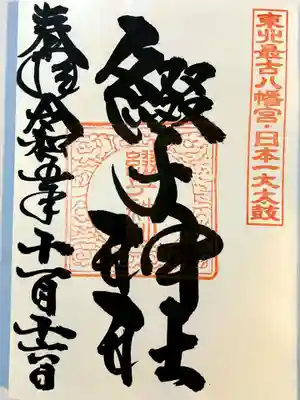 東北最古八幡宮・日本一大太鼓
綴子神社
奉拝 令和五年十一月十六日